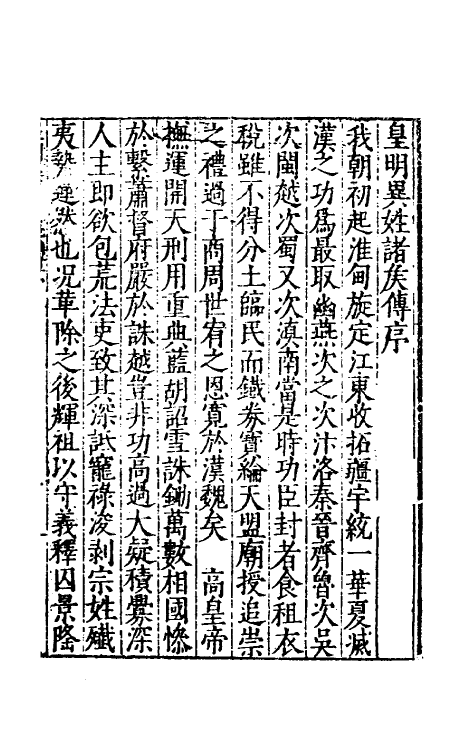 皇明異姓諸矦傳序
我朝初起淮甸旋定江東收拓疆宇統一華夏滅
漢之功爲最取幽燕次之次汴洛秦晉齊魯次吳
次閩越次蜀又次滇南當是時功臣封者食租衣
稅雖不得分土臨民而鐵券寶綸天盟廟授追崇
之禮過于商周世宥之恩寬於漢魏矣　高皇帝
撫運開天刑用重典藍胡詔雪誅鋤萬數相國慘
於繫蕭督府嚴於誅越豈非功高過大疑積釁深
人主即欲包荒法吏致其深詆寵祿凌剥宗姓殱
夷勢逕然也况華除之後輝祖以守義釋囚景隆